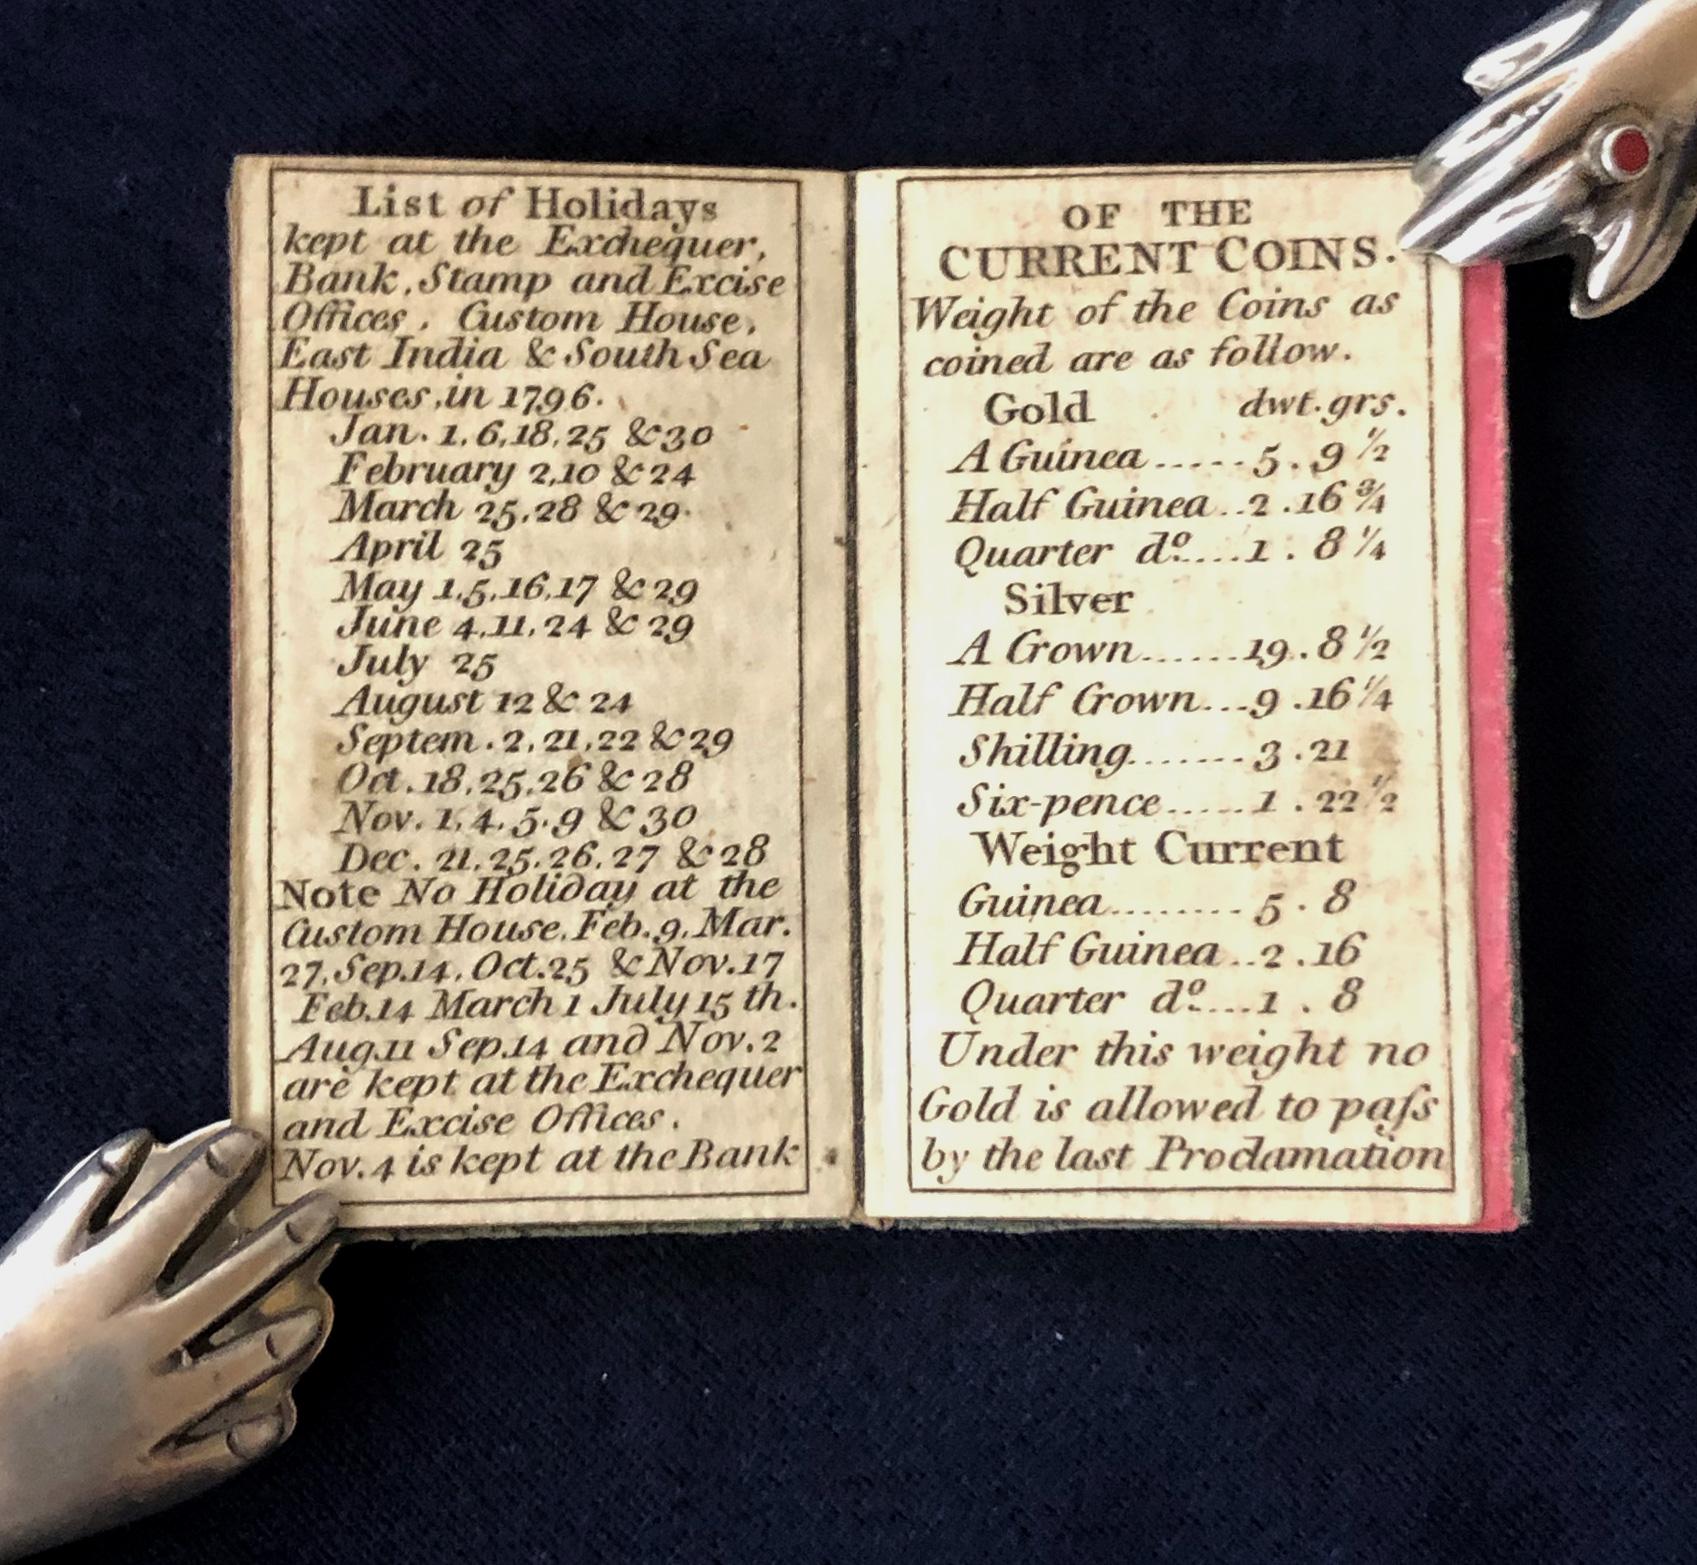 List of Holidays
kept at the Exchequer,
Bank, Stamp and Excise
Offices, Custom House,
East India & South Sea
Houses, in 1796.
Jan. 1, 6, 18, 25 & 30
February 2, 10 & 24
March 25, 28 & 29.
April 25
May 1, 5, 16, 17 & 29
June 4, 11, 24 & 29
July 25
August 12 & 24
Septem. 2, 21, 22 & 29
Oct. 18, 25, 26 & 28
Nov. 1, 4, 5, 9 & 30
Dec. 21, 25, 26, 27 & 28
Note No Holiday at the
Custom House, Feb. 9, Mar.
27, Sep. 14, Oct. 25 & Nov. 17
Feb. 14 March 1 July 15 th.
Aug. 11 Sep. 14 and Nov. 2
are kept at the Exchequer
and Excise Offices.
Nov. 4 is kept at the Bank
OF THE
CURRENT COINS.
Weight of the Coins as
coined are as follow.
Gold dwt. grs.
A Guinea.....5. 9 ½
Half Guinea..2. 16 ¾
Quarter dº....1. 8 ¼
Silver
A Crown......19. 8 ½
Half Crown...9. 16 ¼
Shilling.......3. 21
Six-pence.....1. 22 ½
Weight Current
Guinea........5. 8
Half Guinea..2. 16
Quarter dº....1. 8
Under this weight no
Gold is allowed to paſs
by the last Proclamation